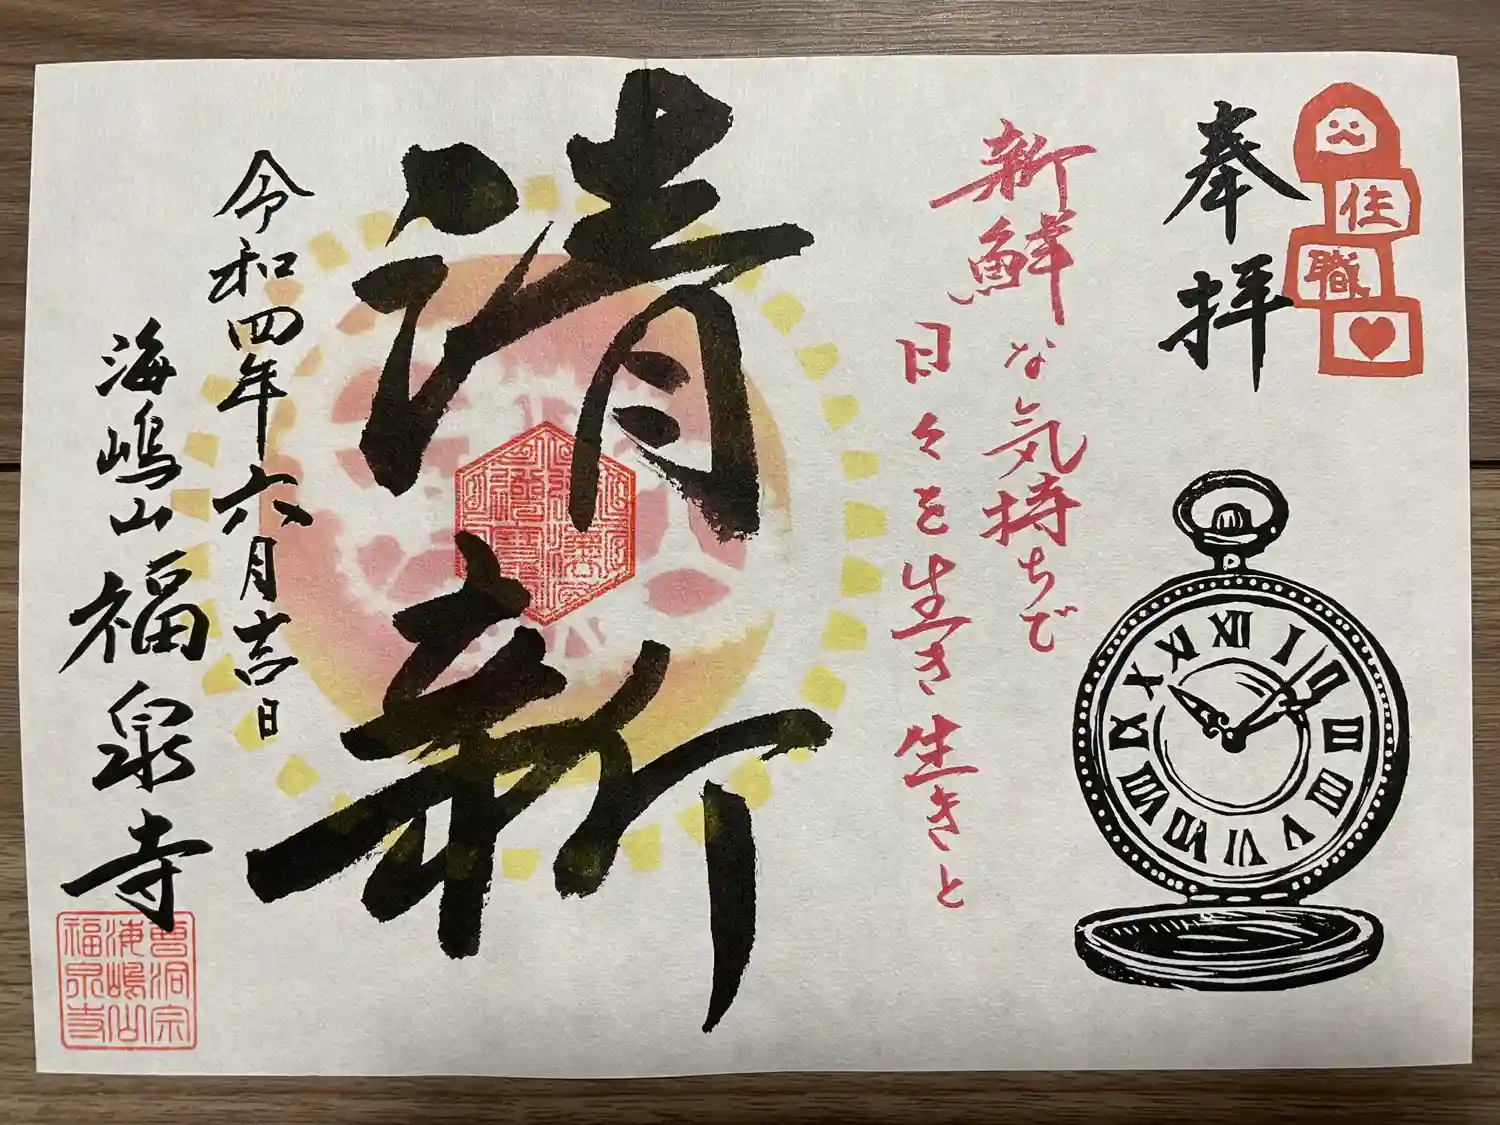 奉拝
住
職
新鮮な気持ちで
日々を生き生きと
清新
令和四年六月吉日
海嶋山福泉寺
曹洞宗
海嶋山
福泉寺
XII
I
II
III
IIII
V
VI
VII
VIII
IX
X
XI